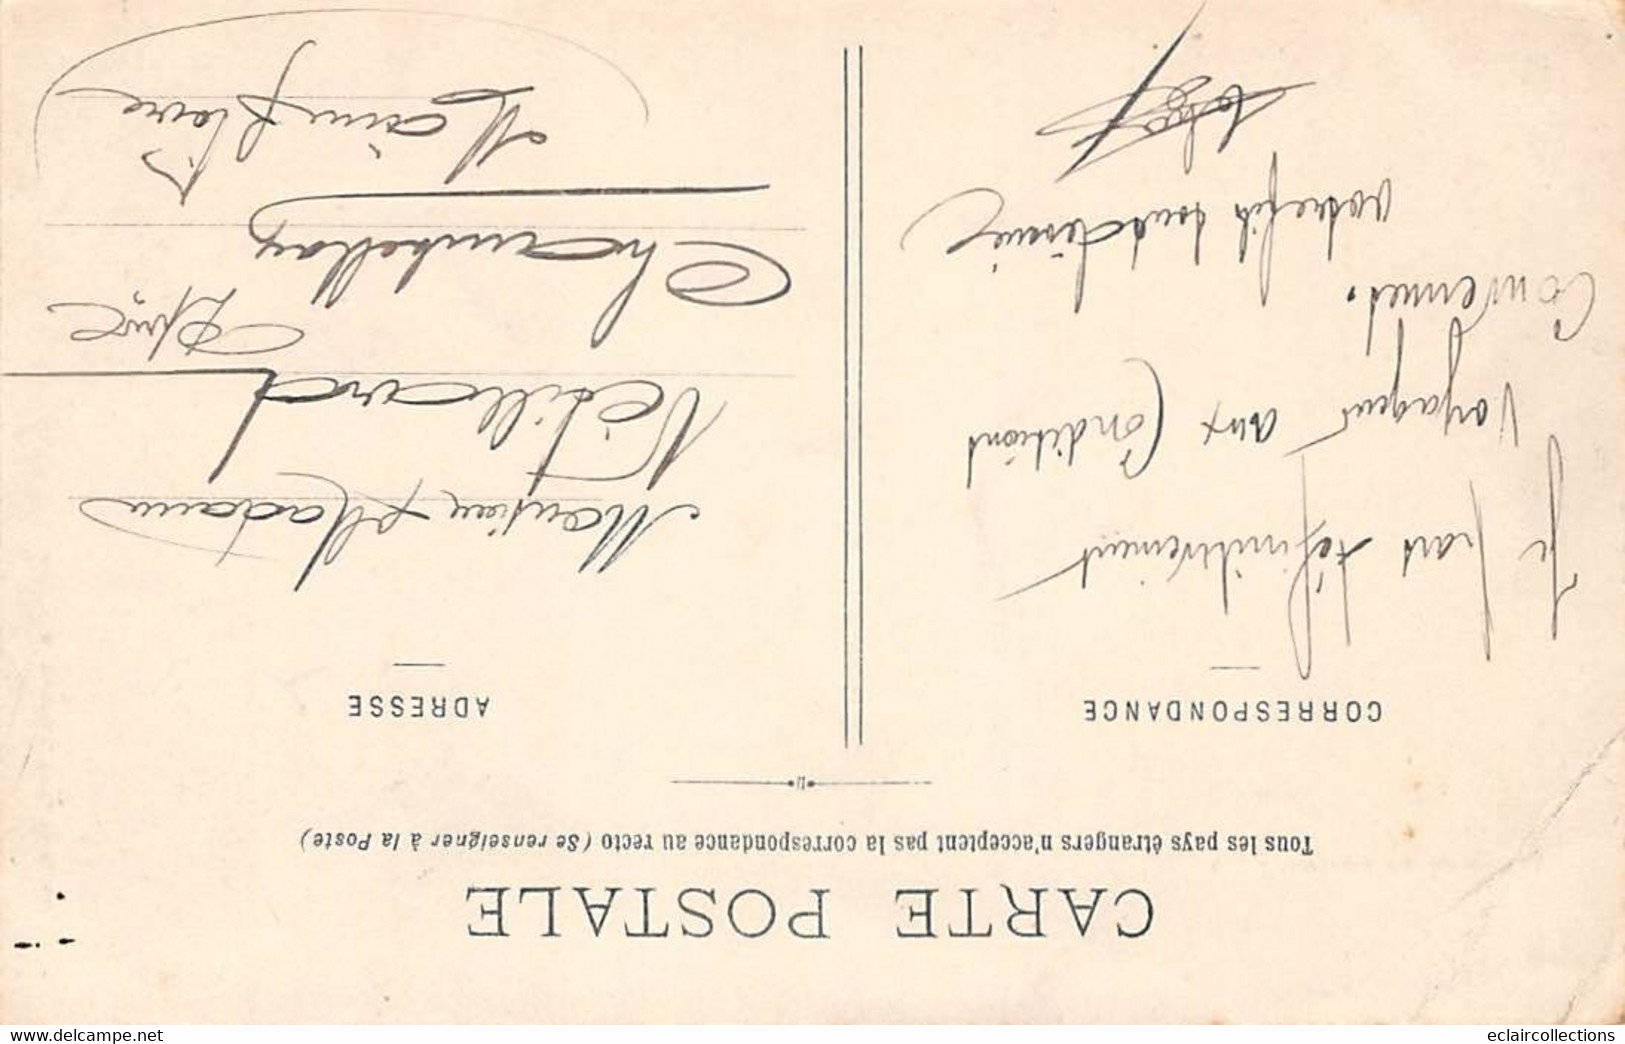 CARTE POSTALE
Tous les pays étrangers n'acceptent pas la correspondance au recto (Se renseigner à la Poste)
CORRESPONDANCE
Je pars définitivement
Voyageur aux Conditions
Convenues.
votre fils tout dévoué
ADRESSE
Monsieur & Madame
Vétillard
Chambellay
Maine & Loire
www.delcampe.net
eclaircollections